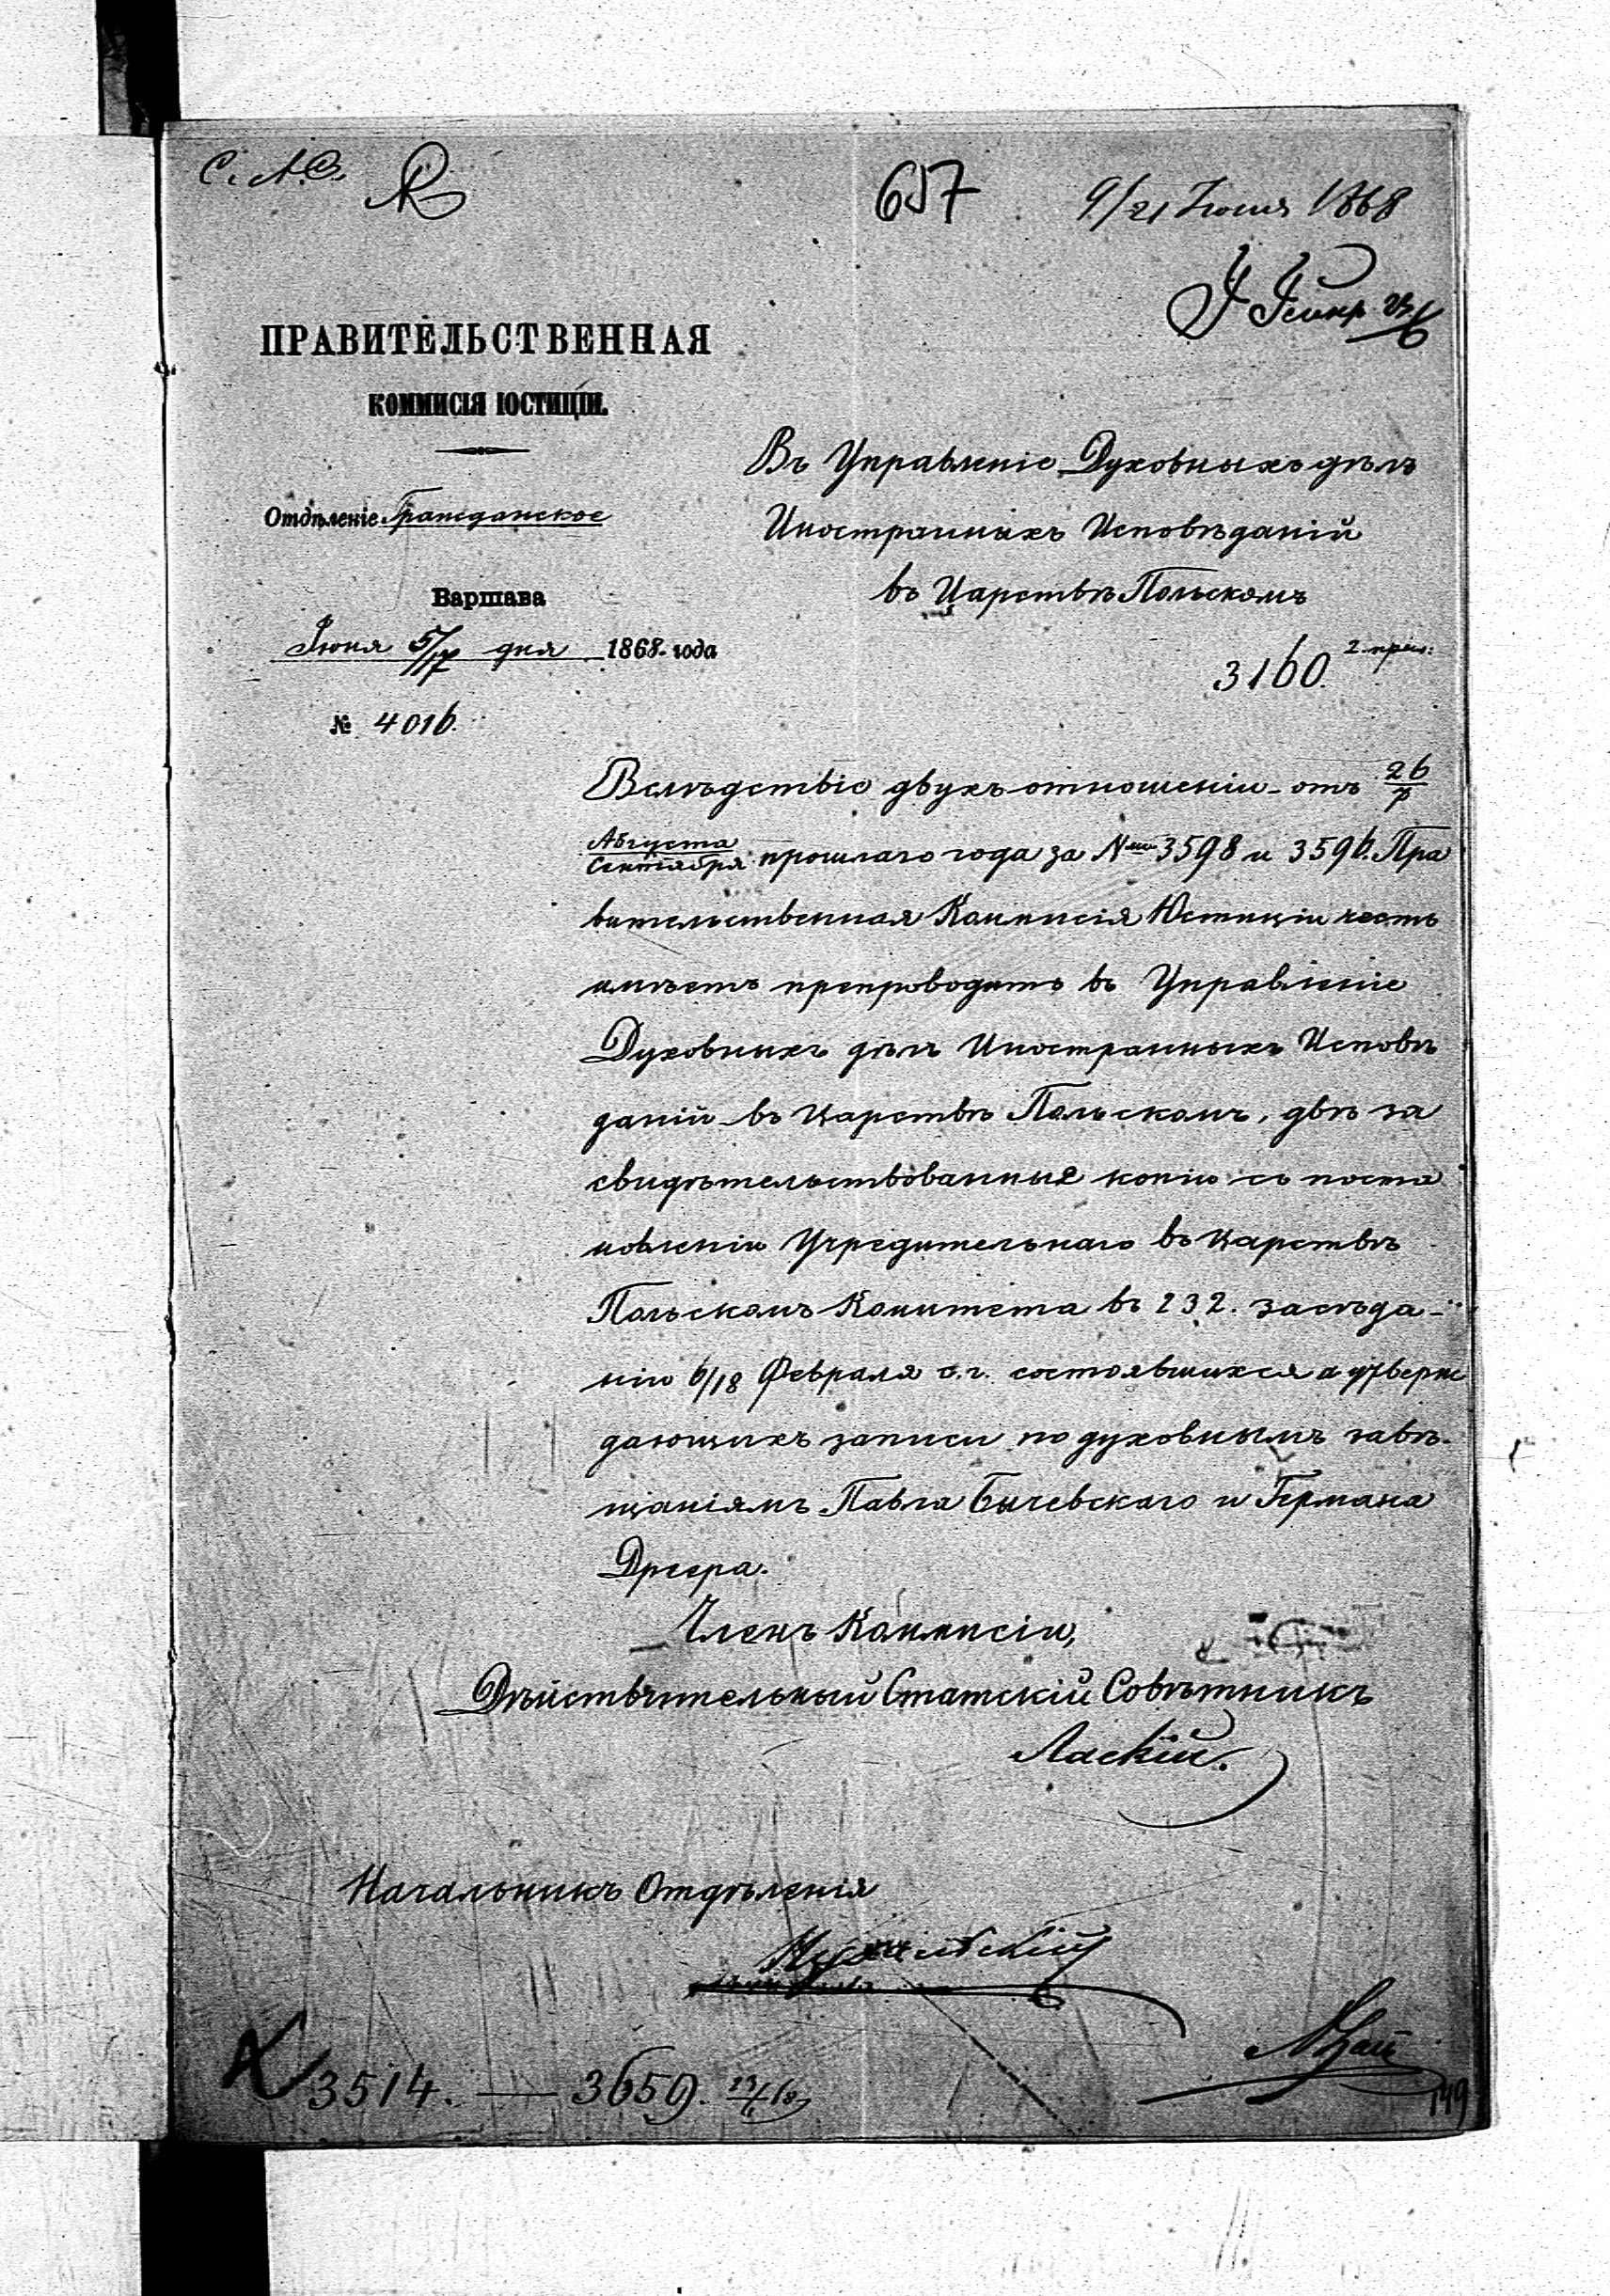 657
9/21 Іюня 1868
ПРАВИТЕЛЬСТВЕННАЯ
КОММИСІЯ ЮСТИЦІИ.
Отдѣленіе Гражданское
Варшава
Іюня 5/17 дня 1868 года
№ 4016.
Въ Управленіе Духовныхъ дѣлъ
Иностранныхъ Исповѣданій
въ Царствѣ Польскомъ
2 прил:
3160.
Вслѣдствіе двухъ отношеній отъ 26/7
Августа/Сентября прошлаго года за №№ 3598 и 3596. Пра
вительственная Коммисія Юстиціи честь
имѣетъ препроводить въ Управленіе
Духовныхъ дѣлъ Иностранныхъ Исповѣ
даній въ Царствѣ Польскомъ, двѣ за
свидѣтельствованныя копіи съ поста
новленій Учредительнаго въ Царствѣ
Польскомъ Комитета въ 232. засѣда-
ніи 6/18 Февраля с.г. состоявшихся а утверж
дающихъ записи по духовнымъ завѣ-
щаніямъ Павла Бычевскаго и Германа
Дреера.
Членъ Коммисіи,
Дѣйствительный Статскій Совѣтникъ
Ласкій.
Начальникъ Отдѣленія
3514. — 3659.
149